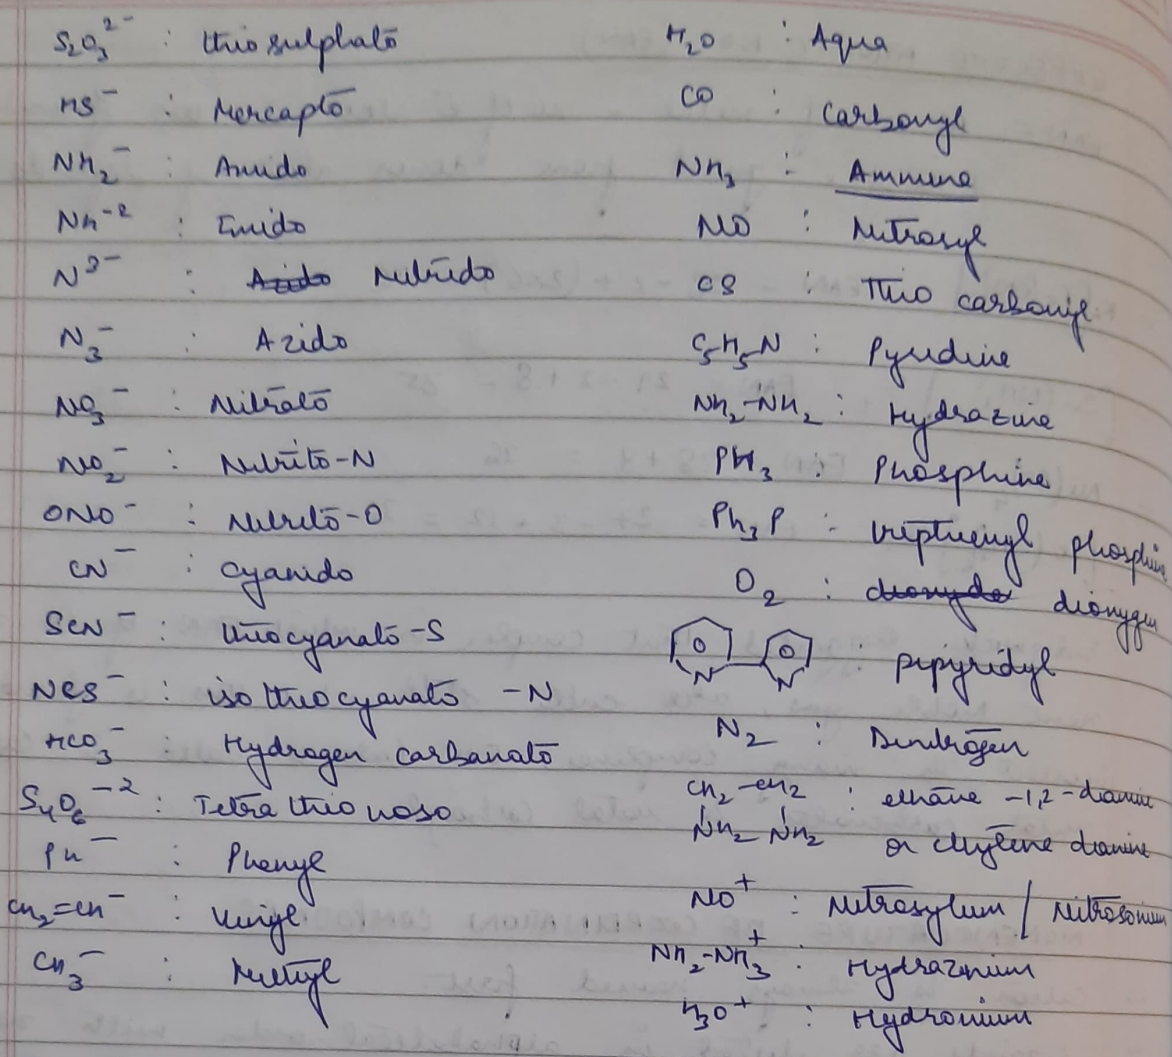 S₂O₃²⁻ : thiosulphato
HS⁻ : Mercapto
NH₂⁻ : Amido
NH⁻² : Imido
N³⁻ : ~~Azido~~ Nitrido
N₃⁻ : Azido
NO₃⁻ : Nitrato
NO₂⁻ : Nitrito-N
ONO⁻ : Nitrito-O
CN⁻ : Cyanido
SCN⁻ : thiocyanato-S
NCS⁻ : iso thiocyanato -N
HCO₃⁻ : Hydrogen carbanato
S₄O₆⁻² : Tetra thio noso
Ph⁻ : Phenyl
CH₂=CH⁻ : Vinyl
CH₃⁻ : Methyl
H₂O : Aqua
CO : Carbonyl
NH₃ : Ammine
NO : Nitrosyl
CS : Thio carbonyl
C₅H₅N : Pyridine
NH₂-NH₂ : Hydrazine
PH₃ : Phosphine
Ph₃P : triphenyl phosphine
O₂ : dioxygen
N N : pipyridyl
N₂ : Dinitrogen
CH₂-CH₂ : ethane -1,2-diamine
NH₂ NH₂ or ethylene diamine
NO⁺ : Nitrosylium / Nitrosonium
NH₂-NH₃⁺ : Hydrazinium
H₃O⁺ : Hydronium